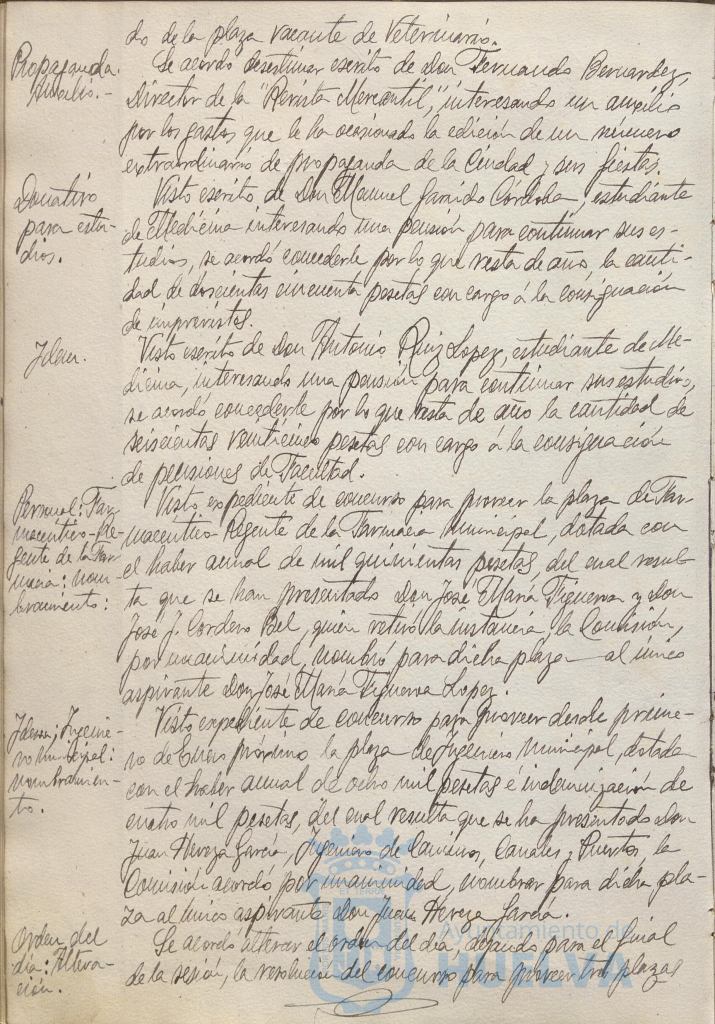 do de la plaza vacante de Veterinario.
Propaganda.
Auxilio.-
Se acordó desestimar escrito de Don Fernando Bernardez,
Director de la "Revista Mercantil", interesando un auxilio
por los gastos que le ha ocasionado la edición de un número
extraordinario de propaganda de la Ciudad y sus fiestas.
Donativo
para estu-
dios.
Visto escrito de Don Manuel Garrido Córdoba, estudiante
de Medicina interesando una pensión para continuar sus es-
tudios, se acordó concederle por lo que resta de año, la canti-
dad de doscientas cincuenta pesetas con cargo á la consignación
de imprevistos.
Idem.
Visto escrito de Don Antonio Ruiz Lopez, estudiante de Me-
dicina, interesando una pensión para continuar sus estudios,
se acordó concederle por lo que resta de año la cantidad de
seiscientas veinticinco pesetas con cargo á la consignación
de pensiones de Facultad.
Personal: Far-
maceutico-Re-
gente de la Far-
macia: nom-
bramiento:
Visto expediente de concurso para proveer la plaza de Far-
maceutico Regente de la Farmacia Municipal, dotada con
el haber anual de mil quinientas pesetas, del cual resul-
ta que se han presentado Don José María Figueroa y Don
José J. Cordero Bel, quien retiró la instancia, la Comisión,
por unanimidad, nombró para dicha plaza al único
aspirante Don José María Figueroa Lopez.
Idem; Ingenie-
ro municipal:
nombramien-
to.
Visto expediente de concurso para proveer desde prime-
ro de Enero próximo la plaza de Ingeniero Municipal, dotada
con el haber anual de ocho mil pesetas é indemnización de
cuatro mil pesetas, del cual resulta que se ha presentado Don
Juan Hereza García, Ingeniero de Caminos, Canales y Puertos, la
Comisión acordó por unanimidad, nombrar para dicha pla-
za al único aspirante Don Juan Hereza García.
Orden del
día: Altera-
ción.
Se acordó alterar el orden del día, dejando para el final
de la sesión, la resolución del concurso para proveer tres plazas
Ayuntamiento de
HUELVA